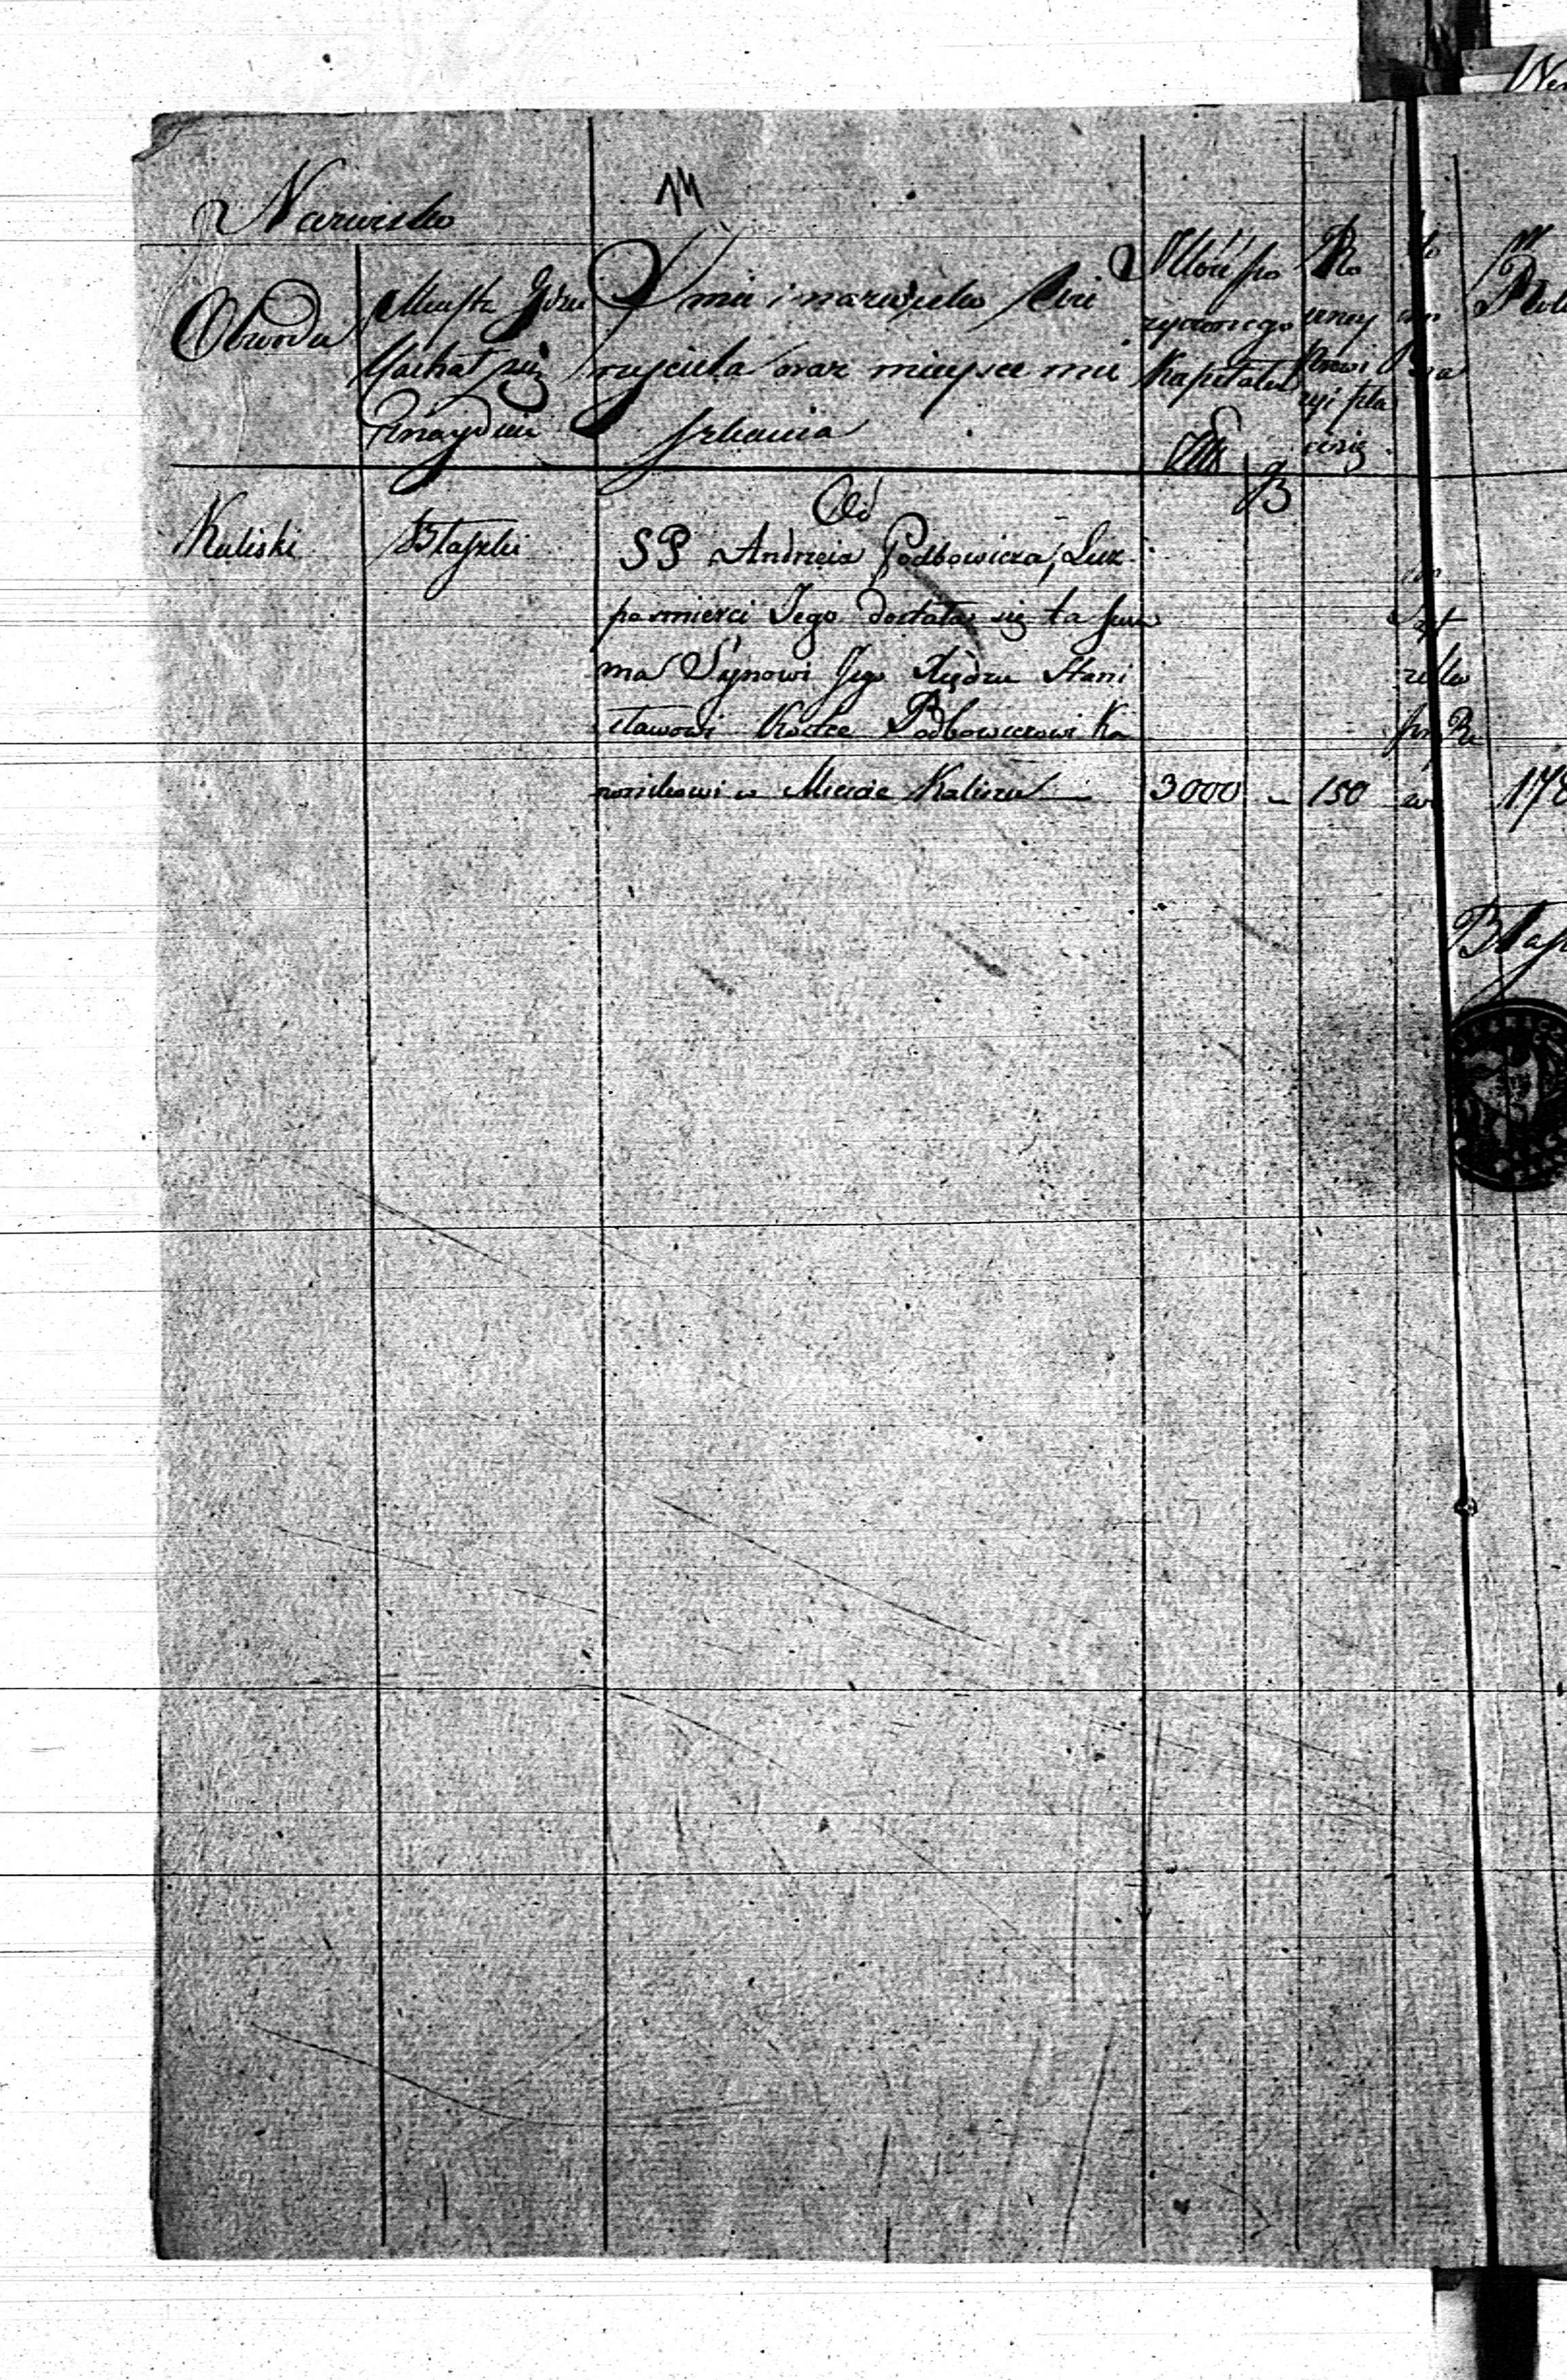 14
Nazwisko
Obwodu
Miasta gdzie
Kachał się
znayduie
Imie i nazwisko Wie
rzyciela oraz mieysce mie
szkania
Ilość po
życzonego
Kapitału
Ro
czney
Prowi
zyi pła
ci się
Kaliski
Błaszki
Od
SP Andrzeia Podbowicza, Lecz
po smierci Jego dostała się ta sum
ma Synowi Jego Xiędzu Stani
sławowi Kostce Podbowiczowi Ka
nonikowi w Miescie Kaliszu
3000 - 150
178
Błasz